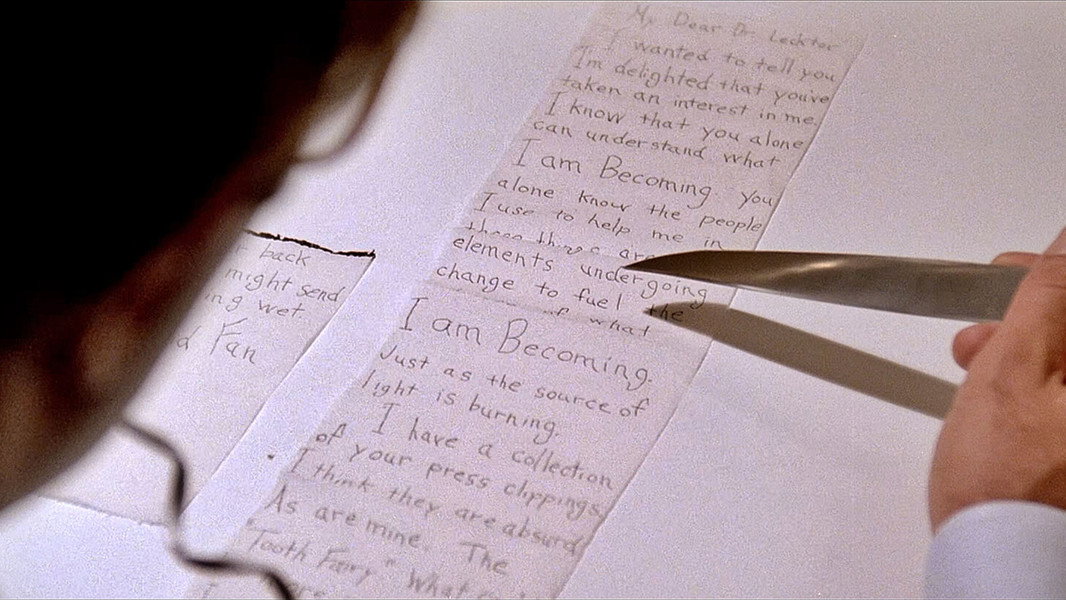 My Dear Dr. Lecktor
I wanted to tell you
I'm delighted that you've
taken an interest in me.
I know that you alone
can understand what
I am Becoming. You
alone know the people
I use to help me in
these things are
elements undergoing
change to fuel the
of what
I am Becoming.
Just as the source of
light is burning.
I have a collection
of your press clippings.
I think they are absurd
As are mine. The
Tooth Fairy" What
back
might send
ing wet
d Fan